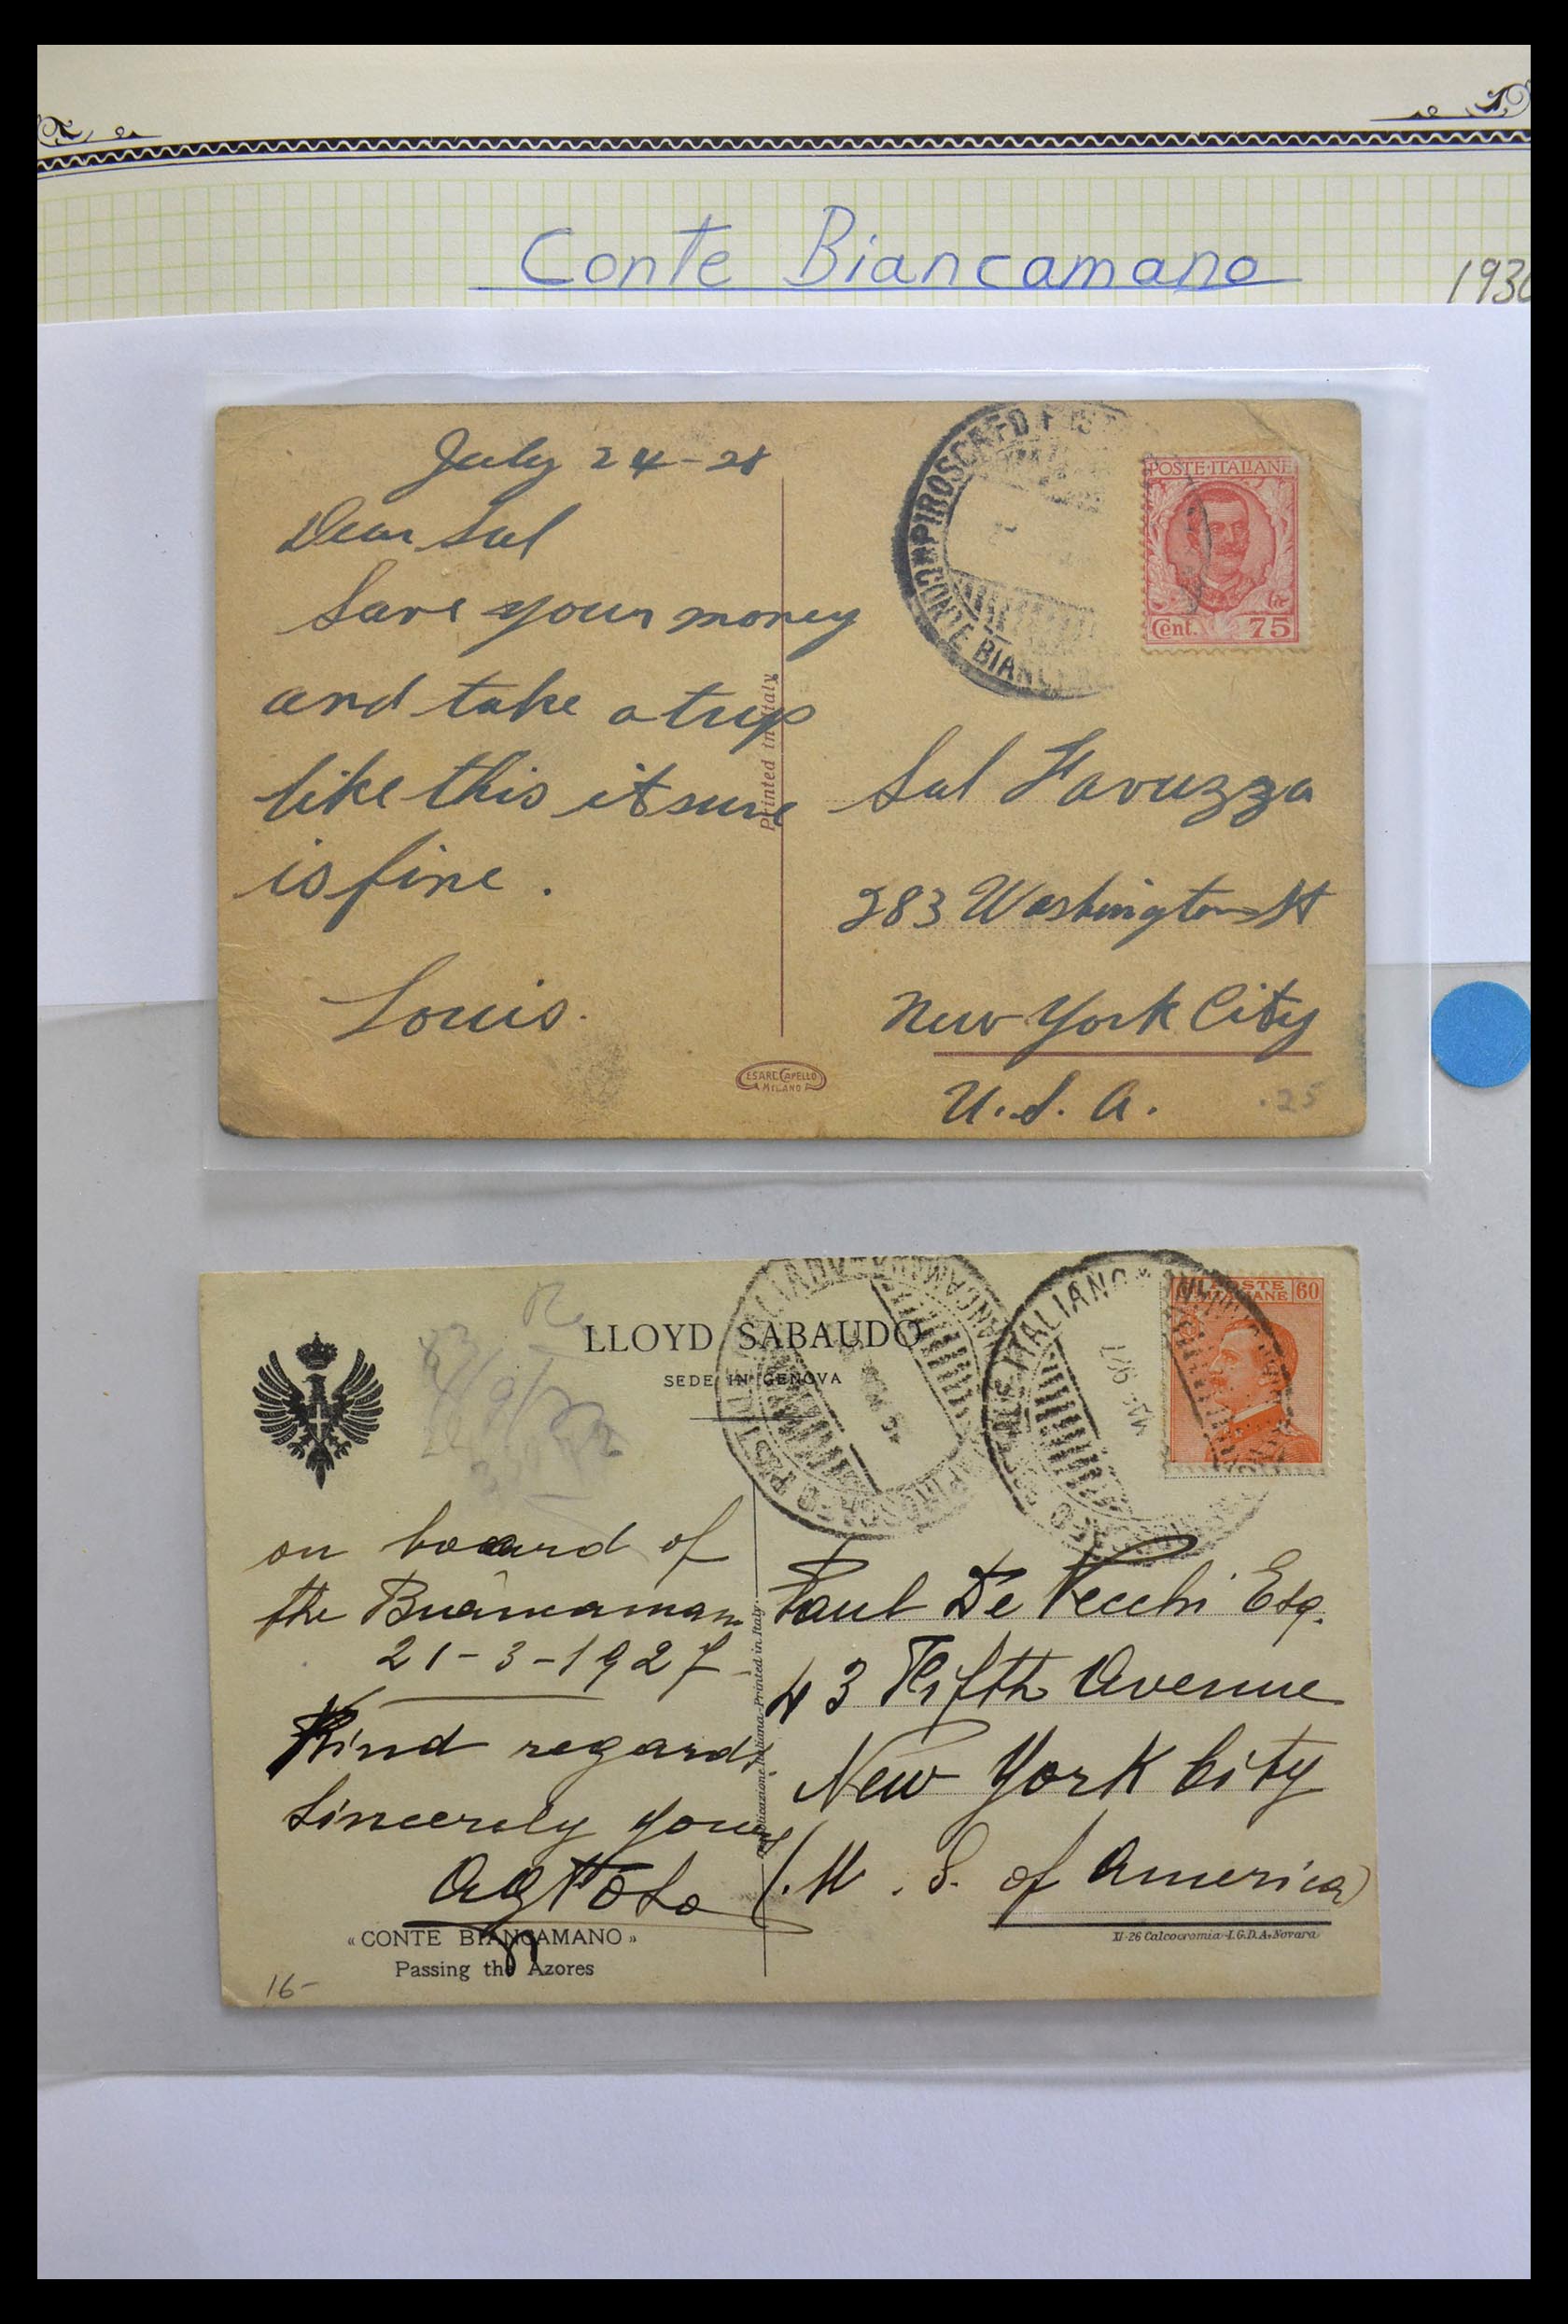 Conte Biancamano
193
July 24-28
Dear Sal
Save your money
and take a trip
like this it sure
is fine.
Louis.
Printed in Italy
CESARE CAPELLO
MILANO
PIROSCAFO
CONTE BIANC
POSTE·ITALIANE
Cent. 75
Sal Favuzza
283 Washington St
New York City
U.S.A.
.25
LLOYD SABAUDO
SEDE IN GENOVA
on board of
the Biancamano
21-3-1927
Kind regards
Sincerely yours
« CONTE BIANCAMANO »
Passing the Azores
16-
Printed in Italy
ITALIANO
POSTE
60
Paul De Vecchi Esq.
43 Fifth Avenue
New York City
(U.S. of America)
XI-26 Calcocromia-I.G.D.A.-Novara